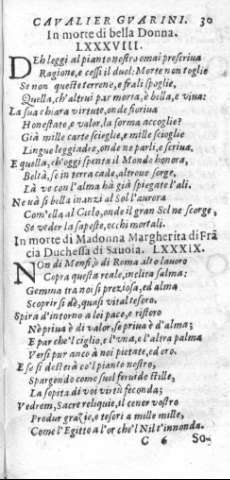 CAVALIER GVARINI. 30
In morte di bella Donna.
LXXXVIII.
DEh leggi al pianto nostro omai prescriua
Ragione, e cessi il duol: Morte non toglie
Se non queste terrene, e frali spoglie,
Quella, ch'altrui par morta, è bella, e viua:
La sua chiara virtute, onde fioriua
Honestate, e valor, la forma accoglie?
Già mille carte scieglie, e mille scioglie
Lingue leggiadre, onde ne parli, e scriua.
E quella, ch'oggi spenta il Mondo honora,
Beltà, se in terra cade, altroue sorge,
Là ve con l'alma hà già spiegate l'ali.
Ne uà sì bella inanzi al Sol l'aurora
Com'ella al Cielo, onde il gran Sol ne scorge,
Se veder la sapeste, occhi mortali.
In morte di Madonna Margherita di Frã
cia Duchessa di Sauoia. LXXXIX.
NOn di Menfi, ò di Roma alto lauoro
Copra questa reale, inclita salma:
Gemma tra noi sì preziosa, ed alma
Scoprir si dè, quasi vital tesoro.
Spira d'intorno a lei pace, e ristoro
Nè priua è di valor, se priua è d'alma;
E par che'l ciglio, e l'vna, e l'altra palma
Versi pur anco à noi pietate, ed oro.
E se si desterà co'l pianto nostro,
Spargendo come suol feruide stille,
La sopita di voi virtù feconda;
Vedrem, Sacre reliquie, il cener vostro
Produr grazie, e tesori a mille mille,
Come l'Egitto a l'or che'l Nil l'innonda.
C 6 So-